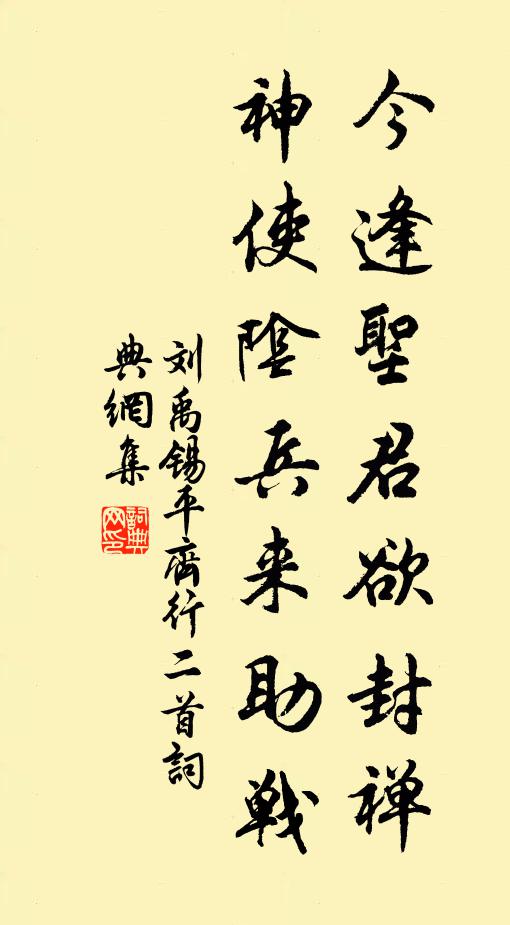 今逢聖君欲封禅
神使陰兵来助戦
刘禹锡平齊行二首詞
典網集
詞典
网印